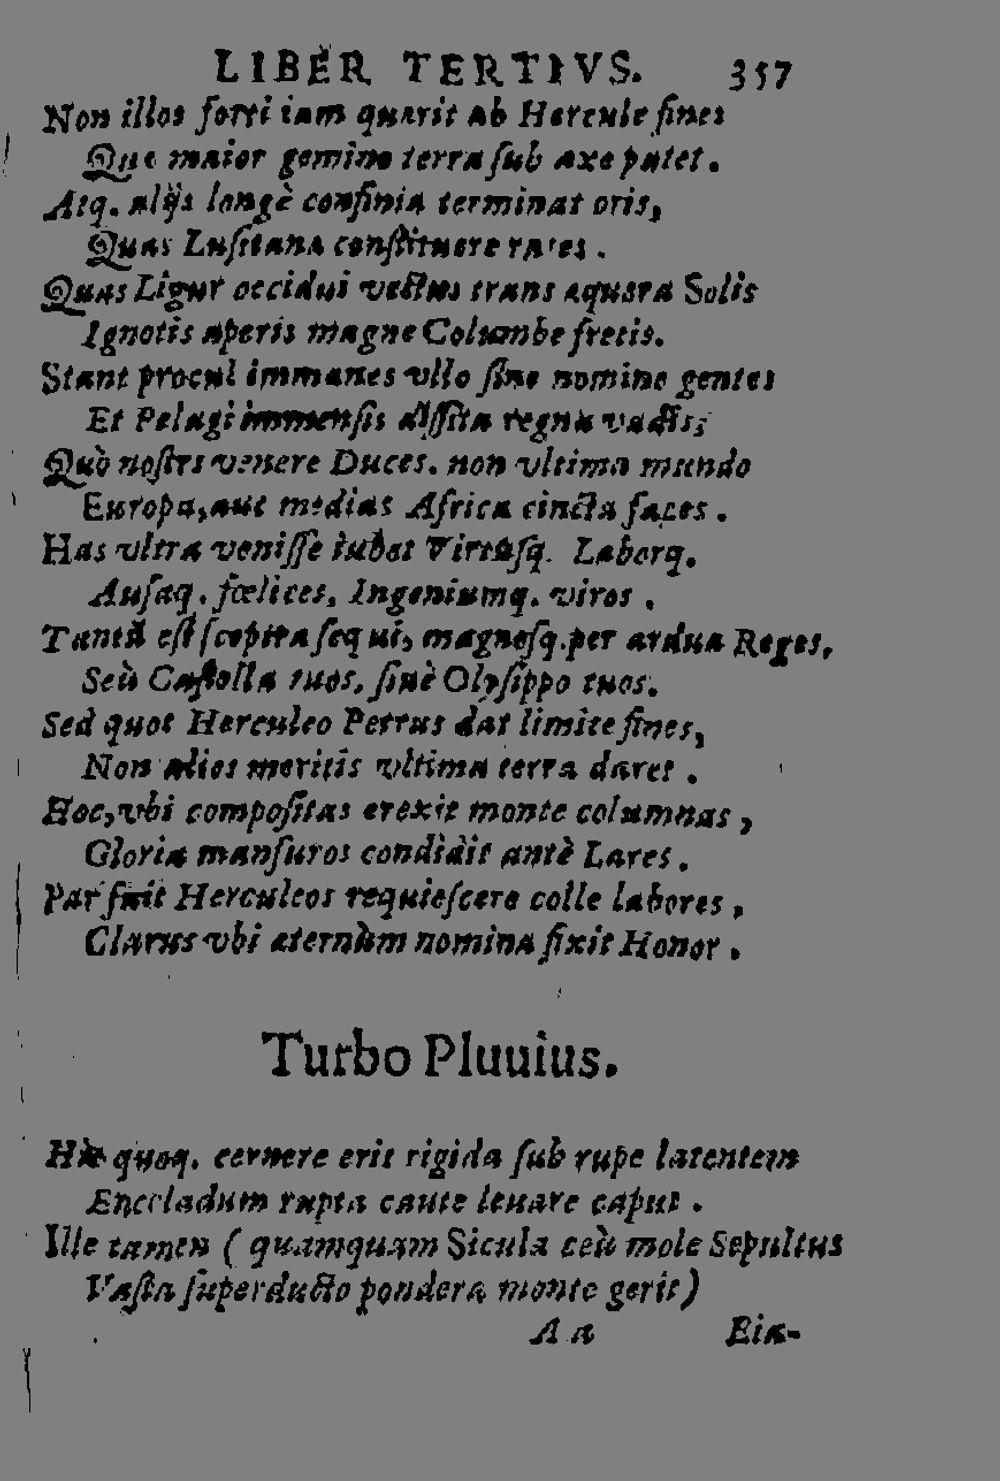 LIBER TERTIVS. 357
Non illos forti iam quærit ab Hercule fines
Quæ maior gemino terra sub axe patet.
Atq. alijs longè confinia terminat oris,
Quas Lusitana constituere rates.
Quas Ligur occidui vectus trans æquora Solis
Ignotis aperis magne Columbe fretis.
Stant procul immanes vllo sine nomine gentes
Et Pelagi immensis dissita regna vadis;
Quò nostri venere Duces. non vltima mundo
Europa, aut medias Africa cincta faces.
Has vltra venisse iubet Virtusq. Laborq.
Ausaq. fœlices, Ingeniumq. viros.
Tantū est sceptra sequi, magnosq. per ardua Reges,
Seù Castella tuos, sinè Olysippo tuos.
Sed quot Herculeo Petrus dat limite fines,
Non alios meritis vltima terra daret.
Hoc, vbi compositas erexit monte columnas,
Gloria mansuros condidit antè Lares.
Par fuit Herculeos requiescere colle labores,
Clarus vbi æternùm nomina fixit Honor.
Turbo Pluuius.
Hic quoq. cernere erit rigida sub rupe latentem
Enceladum rupta caute leuare caput.
Ille tamen (quamquam Sicula ceù mole Sepultus
Vasta superducto pondera monte gerit)
A a Eia-